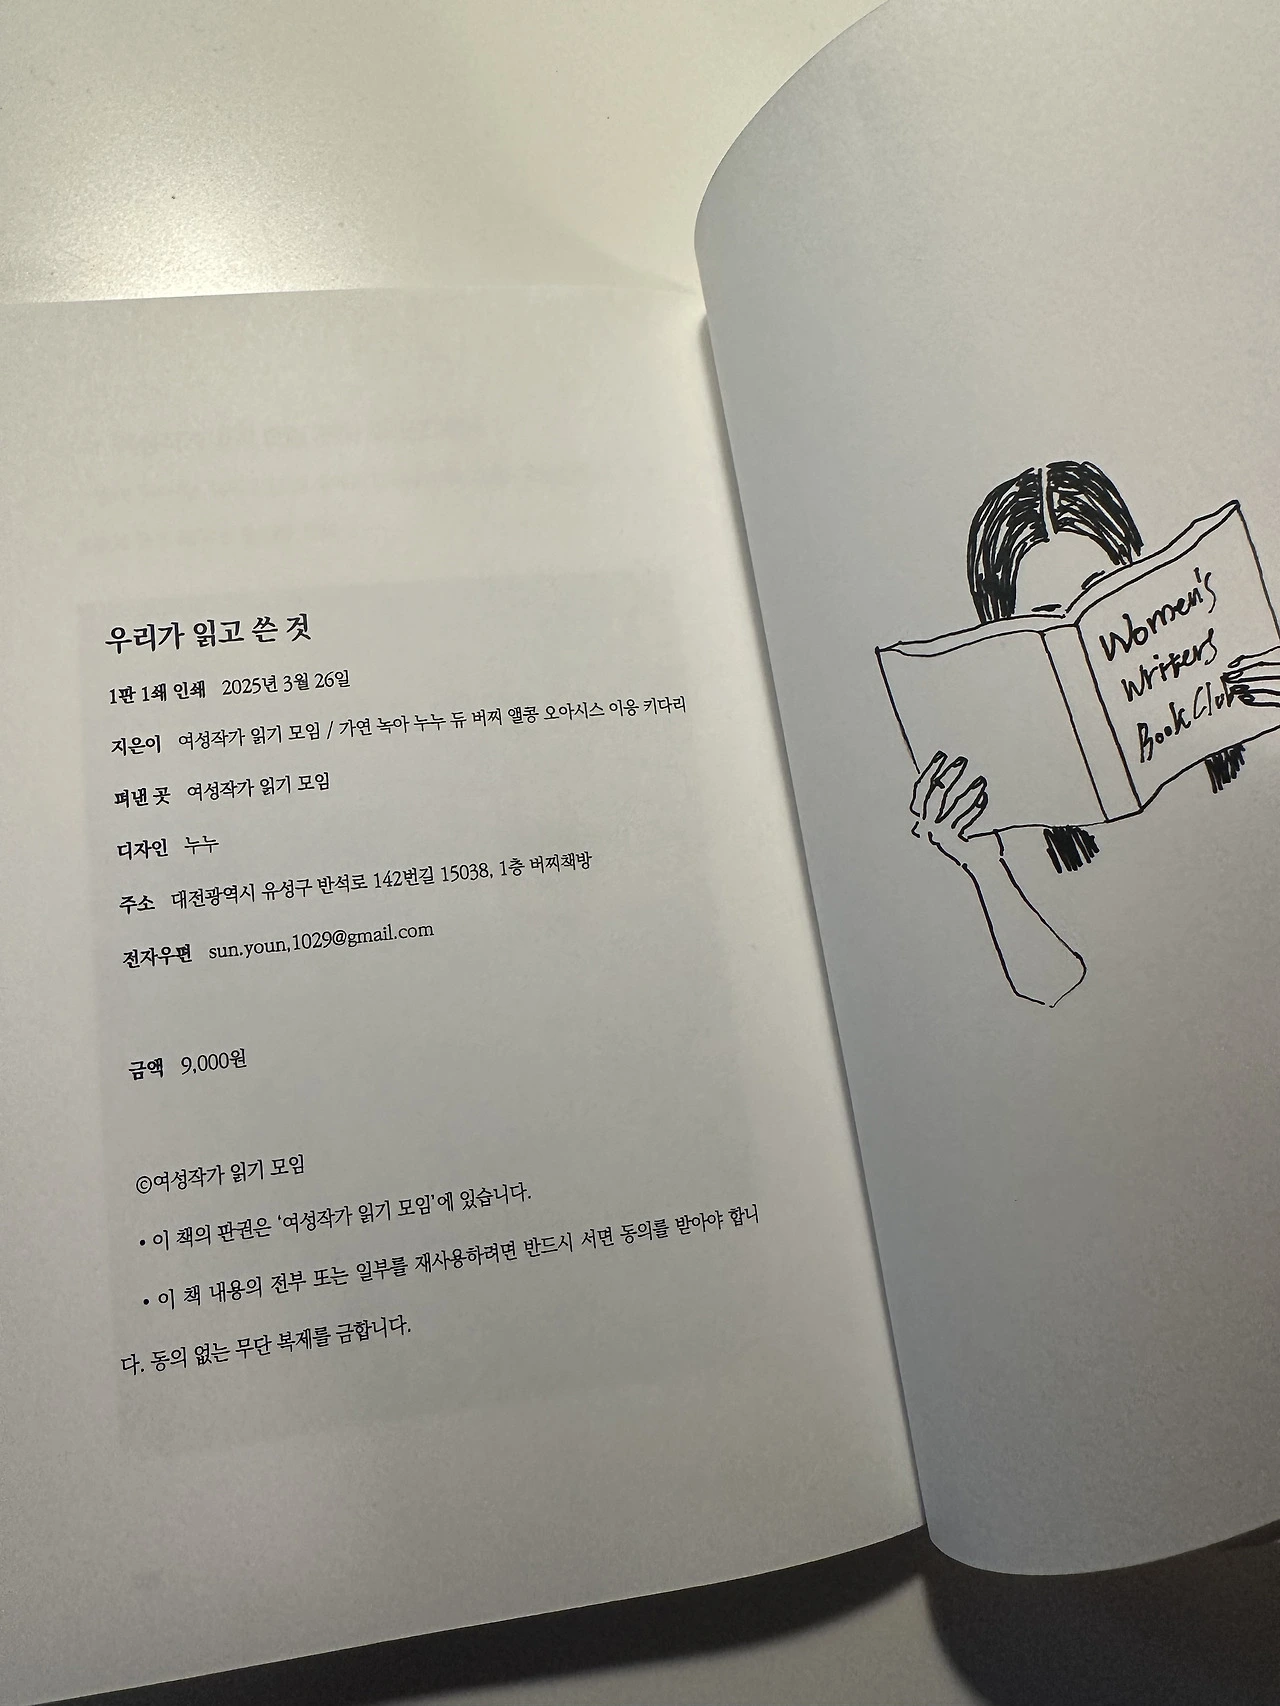 우리가 읽고 쓴 것
1판 1쇄 인쇄 2025년 3월 26일
지은이 여성작가 읽기 모임 / 가연 녹아 누누 듀 버찌 앨콩 오아시스 이응 키다리
펴낸 곳 여성작가 읽기 모임
디자인 누누
주소 대전광역시 유성구 반석로 142번길 15038, 1층 버찌책방
전자우편 sun.youn,1029@gmail.com
금액 9,000원
©여성작가 읽기 모임
• 이 책의 판권은 ‘여성작가 읽기 모임’에 있습니다.
• 이 책 내용의 전부 또는 일부를 재사용하려면 반드시 서면 동의를 받아야 합니
다. 동의 없는 무단 복제를 금합니다.
Women's
Writers
Book Club